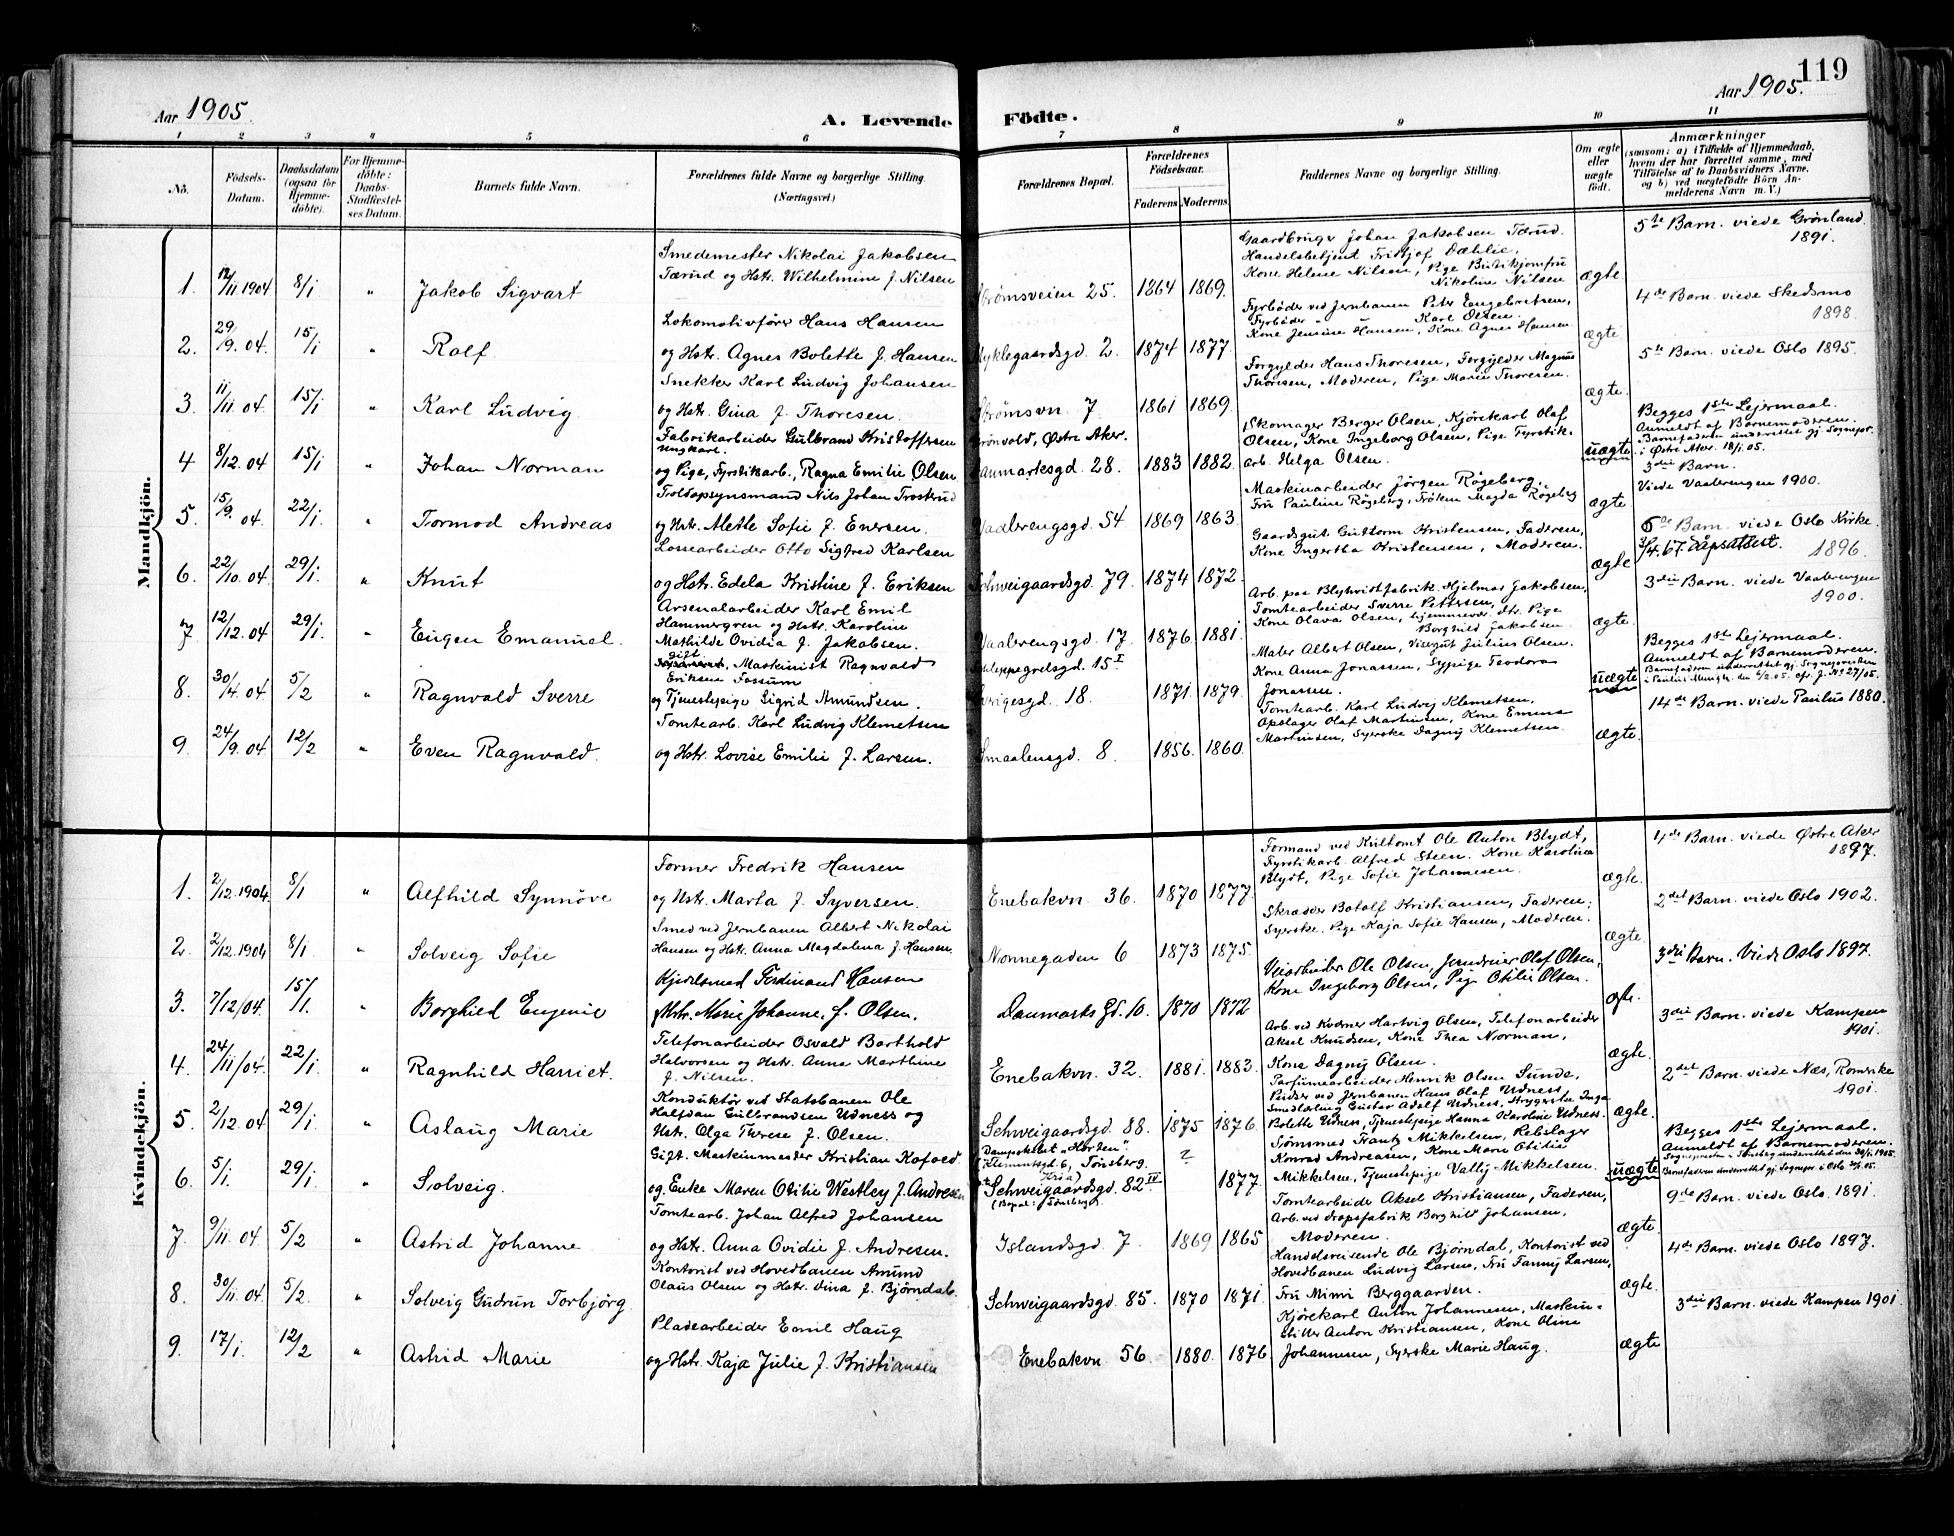 119
Aar 1905
Aar 1905.
A. Levende Födte.
1 2 3 4 5 6 7 8 9 10 11
No.
Födsels-Datum.
Daabsdatum (ogsaa for Hjemme-döbte).
For Hjemme-döbte: Daabs-Stadfæstel-ses Datum.
Barnets fulde Navn.
Forældrenes fulde Navne og borgerlige Stilling. (Næringsvei)
Forældrenes Bopæl.
Forældrenes Födselsaar.
Faderens Moderens
Faddernes Navne og borgerlige Stilling.
Om ægte eller uægte födt.
Anmærkninger
(saasom: a) i Tilfælde af Hjemmedaab, hvem der har forrettet samme, med Tilföielse af to Daabsvidners Navne, og b) ved uægtefödte Börn An-melderens Navn m. V.)
Mandkjön.
1. 12/11 1904 8/1 " Jakob Sigvart
Smedemester Nikolai Jakobsen
Tærud og Hstr. Wilhelmine f. Nilsen
Strømsveien 25. 1864 1869.
Gaardbruger Johan Jakobsen Tærud.
Handelsbetjent Fritjof Dæhlie,
Kone Helene Nilsen, Pige Butikjomfru
Nikoline Nilsen
ægte.
5te Barn. viede Grönland.
1891.
2. 29/9. 04. 15/1 " Rolf.
Lokomotivfører Hans Hansen
og Hstr. Agnes Bolette f. Hansen
Nyklegaardsgd. 2. 1874 1877
Fyrbøder ved Jernbanen Peter Engebretsen,
Fyrbøder " Karl Olsen.
Kone Jensine Hansen, Kone Agnes Hansen
ægte.
4de Barn viede Skedsmo
1898.
3. 11/11. 04. 15/1 " Karl Ludvig.
Snekker Karl Ludvig Johansen
og Hstr. Gina f. Thoresen.
Strømsvn. 7. 1861 1869.
Forgylder Hans Thoresen, Forgylder Magnus
Thoresen, Moderen, Pige Marie Thoresen.
ægte.
5te Barn. viede Oslo 1895.
4 8/12. 04 15/1 " Johan Norman
Fabrikarbeider Gulbrand Kristoffersen
ungkarl.
og Pige, Fyrstikarb., Ragna Emilie Olsen
Grönvold, Østre Aker.
Danmarksgd. 28. 1883 1882.
Skomager Berger Olsen, Kjörekarl Olaf
Olsen, Kone Ingeborg Olsen, Pige Fyrstik-
arb. Helga Olsen.
uægte
Begges 1ste Lejermaal.
Anmeldt af Barnemoderen.
Barnefaderen underrettet gj. Sognepr.
i Østre Aker. 18/1. 05.
5. 15/9. 04. 22/1. " Tormod Andreas
Toldopsynsmand Nils Johan Trostrud
og Hstr. Alette Sofie f. Enersen.
Vaalerengsgd. 54 1869 1863.
Maskinarbeider Jörgen Røgeberg,
Fru Pauline Røgeberg, Frøken Magda Røgeberg
ægte
3die Barn.
Viede Vaalerengen 1900.
6. 22/10. 04 29/1. " Knut
Lossearbeider Otto Sigfred Karlsen
og Hstr. Edela Kristine f. Eriksen
Schweigaardsgd. 79. 1874 1872.
Gaardsgut Guttorm Kristensen, Faderen,
Kone Ingertha Kristensen, Moderen.
ægte
Barn. viede Oslo Kirke.
1896.
7 12/12. 04 29/1. " Eugen Emanuel.
Arsenalarbeider Karl Emil
Hammergren og Hstr. Karoline
Mathilde Ovidia f. Jakobsen.
Vaalerengsgd. 17. 1876 1881
Arb. paa Blyhvidtfabrik. Hjelmar Jakobsen,
Tomtearbeider Sverre Pettersen,
Kone Olava Olsen, hjemmevær. dtr. Pige
Borghild Jakobsen.
ægte.
3die Barn. viede Vaalerengen
1900.
8. 30/4. 04 5/2 " Ragnvald Sverre
gift
Maskinist Ragnvald
Eriksen Fossum
og Tjenestepige Sigrid Amundsen.
Schleppegrelsgd. 15 I
Sverigesgd. 18. 1871 1879.
Maler Albert Olsen, Visergut Julius Olsen.
Kone Anna Jonassen, Sypige Teodora
Jonassen.
uægte
Begges 1ste Lejermaal.
Anmeldt af Barnemoderen.
9. 24/9. 04 12/2 " Even Ragnvald.
Tomtearb. Karl Ludvig Klemetsen
og Hstr. Lovise Emilie f. Larsen.
Smaalensgd. 8. 1856. 1860.
Tomtearb. Karl Ludvig Klemetsen,
Opslager Olaf Martinsen, Kone Emma
Martinsen, Syerske Dagny Klemetsen.
ægte.
14de Barn. viede Paulus 1880.
Kvindekjön.
1. 2/12. 1904 8/1 " Alfhild Synnöve
Former Fredrik Hansen
og Hstr. Marta f. Syversen.
Enebakvn. 36. 1870 1877.
Formand ved Kultomt Ole Anton Blydt,
Fyrstikarb. Alfred Steen. Kone Karolina
Blydt, Pige Sofie Johannesen.
ægte.
4de Barn. viede Østre Aker
1897.
2. 2/12. 1904 8/1. " Solveig Sofie
Smed ved Jernbanen Albert Nikolai
Hansen og Hstr. Anna Magdalena f. Hansen.
Nonnegaden 6 1873 1875.
Skrædder Botolf Kristiansen, Faderen;
Syerske. Pige Kaja Sofie Hansen, Moderen.
ægte
2det Barn. viede Oslo 1902.
3. 7/12/04. 15/1. " Borghild Eugenie
Kjedelsmed Ferdinand Hansen
Hstr. Marie Johanne, f. Olsen.
Danmarks Gd. 10. 1870 1872
Veiarbeider Ole Olsen, Jerndreier Olaf Olsen,
Kone Ingeborg Olsen, Pige Otilie Olsen.
ægte.
3die Barn. Viede Oslo 1897.
4. 24/11/04. 22/1. " Ragnhild Harriet.
Telefonarbeider Osvald Barthold
Halvorsen og Hstr. Anna Marthine
f. Nilsen.
Enebakvn. 32. 1881. 1883.
Arb. ved Kværner Hartvig Olsen, Telefonarbeider
Aksel Knudsen, Kone Thea Norman,
Kone Dagny Olsen.
ægte.
3die Barn. viede Kampen
1901.
5. 2/12. 04 29/1 " Aslaug Marie
Konduktør ved Statsbanen Ole
Halfdan Gulbrandsen Udness og
Hstr. Olga Therese f. Olsen.
Schweigaardsgd. 88. 1875 1876.
Parfumearbeider Henrik Olsen Sunde,
Pudser ved Jernbanen Hans Olaf Udness,
Smedlærling Gustav Adolf Udness, Strygerske Inga
Bolette Udness, Tjenestepige Hanna Karoline Udness.
ægte.
2det Barn. viede Næs, Romerike
1901.
6. 5/1. 29/1. " Solveig.
Gift. Maskinmester Kristian Kofoed
og Enke Maren Otilie Westley f. Andresen
Dampskibet "Horten"
(Klemetsgd. 6, Tönsberg.
Schweigaardsgd. 82 IV
(Bopæl: Tönsberg).
? 1877.
Sömsmed Frantz Mikkelsen, Rebslager
Konrad Andreasen, Kone Marie Otilie
Mikkelsen, Tjenestepige Vally Mikkelsen.
uægte
Begges 1ste Lejermaal.
Anmeldt af Barnemoderen.
7. 9/11. 04 5/2 " Astrid Johanne
Tomtearb. Johan Alfred Johansen
og Hstr. Anna Ovidie f. Andresen.
Islandsgd. 7 1869 1865
Tomtearbeide Aksel Kristiansen, Faderen,
Arb. ved dropsfabrik Borghild Johansen,
Moderen.
ægte
9de Barn. viede Oslo. 1891.
8. 30/11. 04. 5/2. " Solveig Gudrun Torbjörg.
Kontorist ved Hovedbanen Amund
Olaus Olsen og Hstr. Dina f. Bjørndal.
Schweigaardsgd. 85. 1870 1871.
Handelsreisende Ole Bjørndal, Kontorist ved
Hovedbanen Ludvig Larsen, Fru Fanny Larsen,
Fru Mimi Berggaarden.
ægte.
4de Barn. viede Oslo 1897.
9. 17/1. 12/2 " Astrid Marie
Pladearbeider Emil Haug
og Hstr. Kaja Julie f. Kristiansen
Enebakvn 56. 1880. 1876
Kjørekarl Anton Johannesen, Maskin-
sliber Anton Kristiansen, Kone Oline
Johannesen, Syerske Marie Haug.
ægte
3die Barn. viede Kampen 1901.